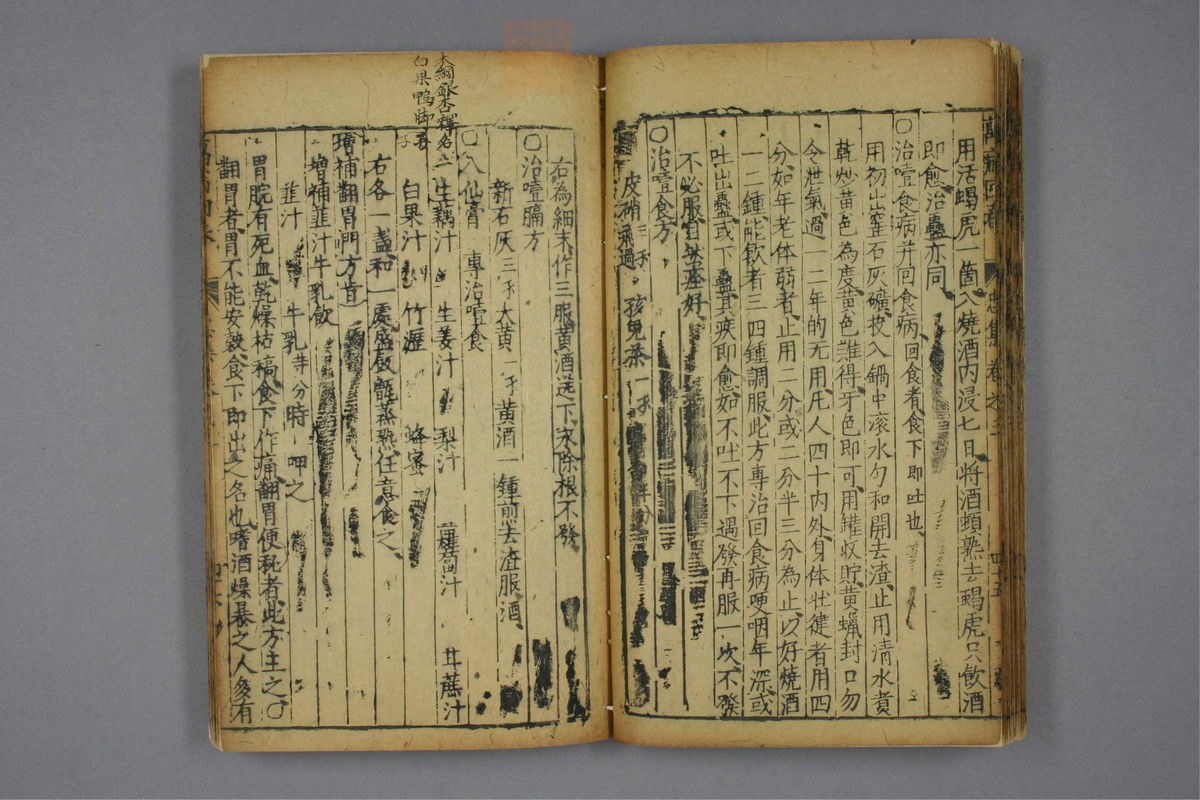 用活蝎虎一箇入燒酒内浸七日將酒頓熟去蝎虎只飲酒
即愈治蠱亦同
〇治噎食病并回食病回食者食下即吐也
用初出窑石灰礦投入鍋中滚水勺和開去渣止用清水煮
乾炒黄色為度黄色難得牙色即可用罐收貯黄蠟封口勿
令泄氣過一二年的无用凡人四十内外身体壮健者用四
分如年老体弱者止用二分或二分半三分為止以好燒酒
一二鍾能飲者三四鍾調服此方專治回食病哽咽年深或
吐出蠱或下蠱其疾即愈如不吐不下遇發再服一次不發
不必服自然痊好
〇治噎食方
皮硝三 飛過 孩兒茶一
右為細末作三服黄酒送下永除根不發
〇治噎膈方
新石灰三 大黄一 黄酒一鍾煎去渣服酒
〇八仙膏 專治噎食
生藕汁 生姜汁 梨汁 蘿蔔汁 甘蔗汁
白果汁 竹瀝 蜂蜜
右各一盞和一處盛飯甑蒸熟任意食之
增補翻胃門方旨
增補韮汁牛乳飲
韮汁 牛乳等分時呷之
胃脘有死血乾燥枯稿食下作痛翻胃便秘者此方主之〇
翻胃者胃不能安穀食下即出之名也嗜酒燥暴之人多有
本綱銀杏釋名
白果鴨脚子